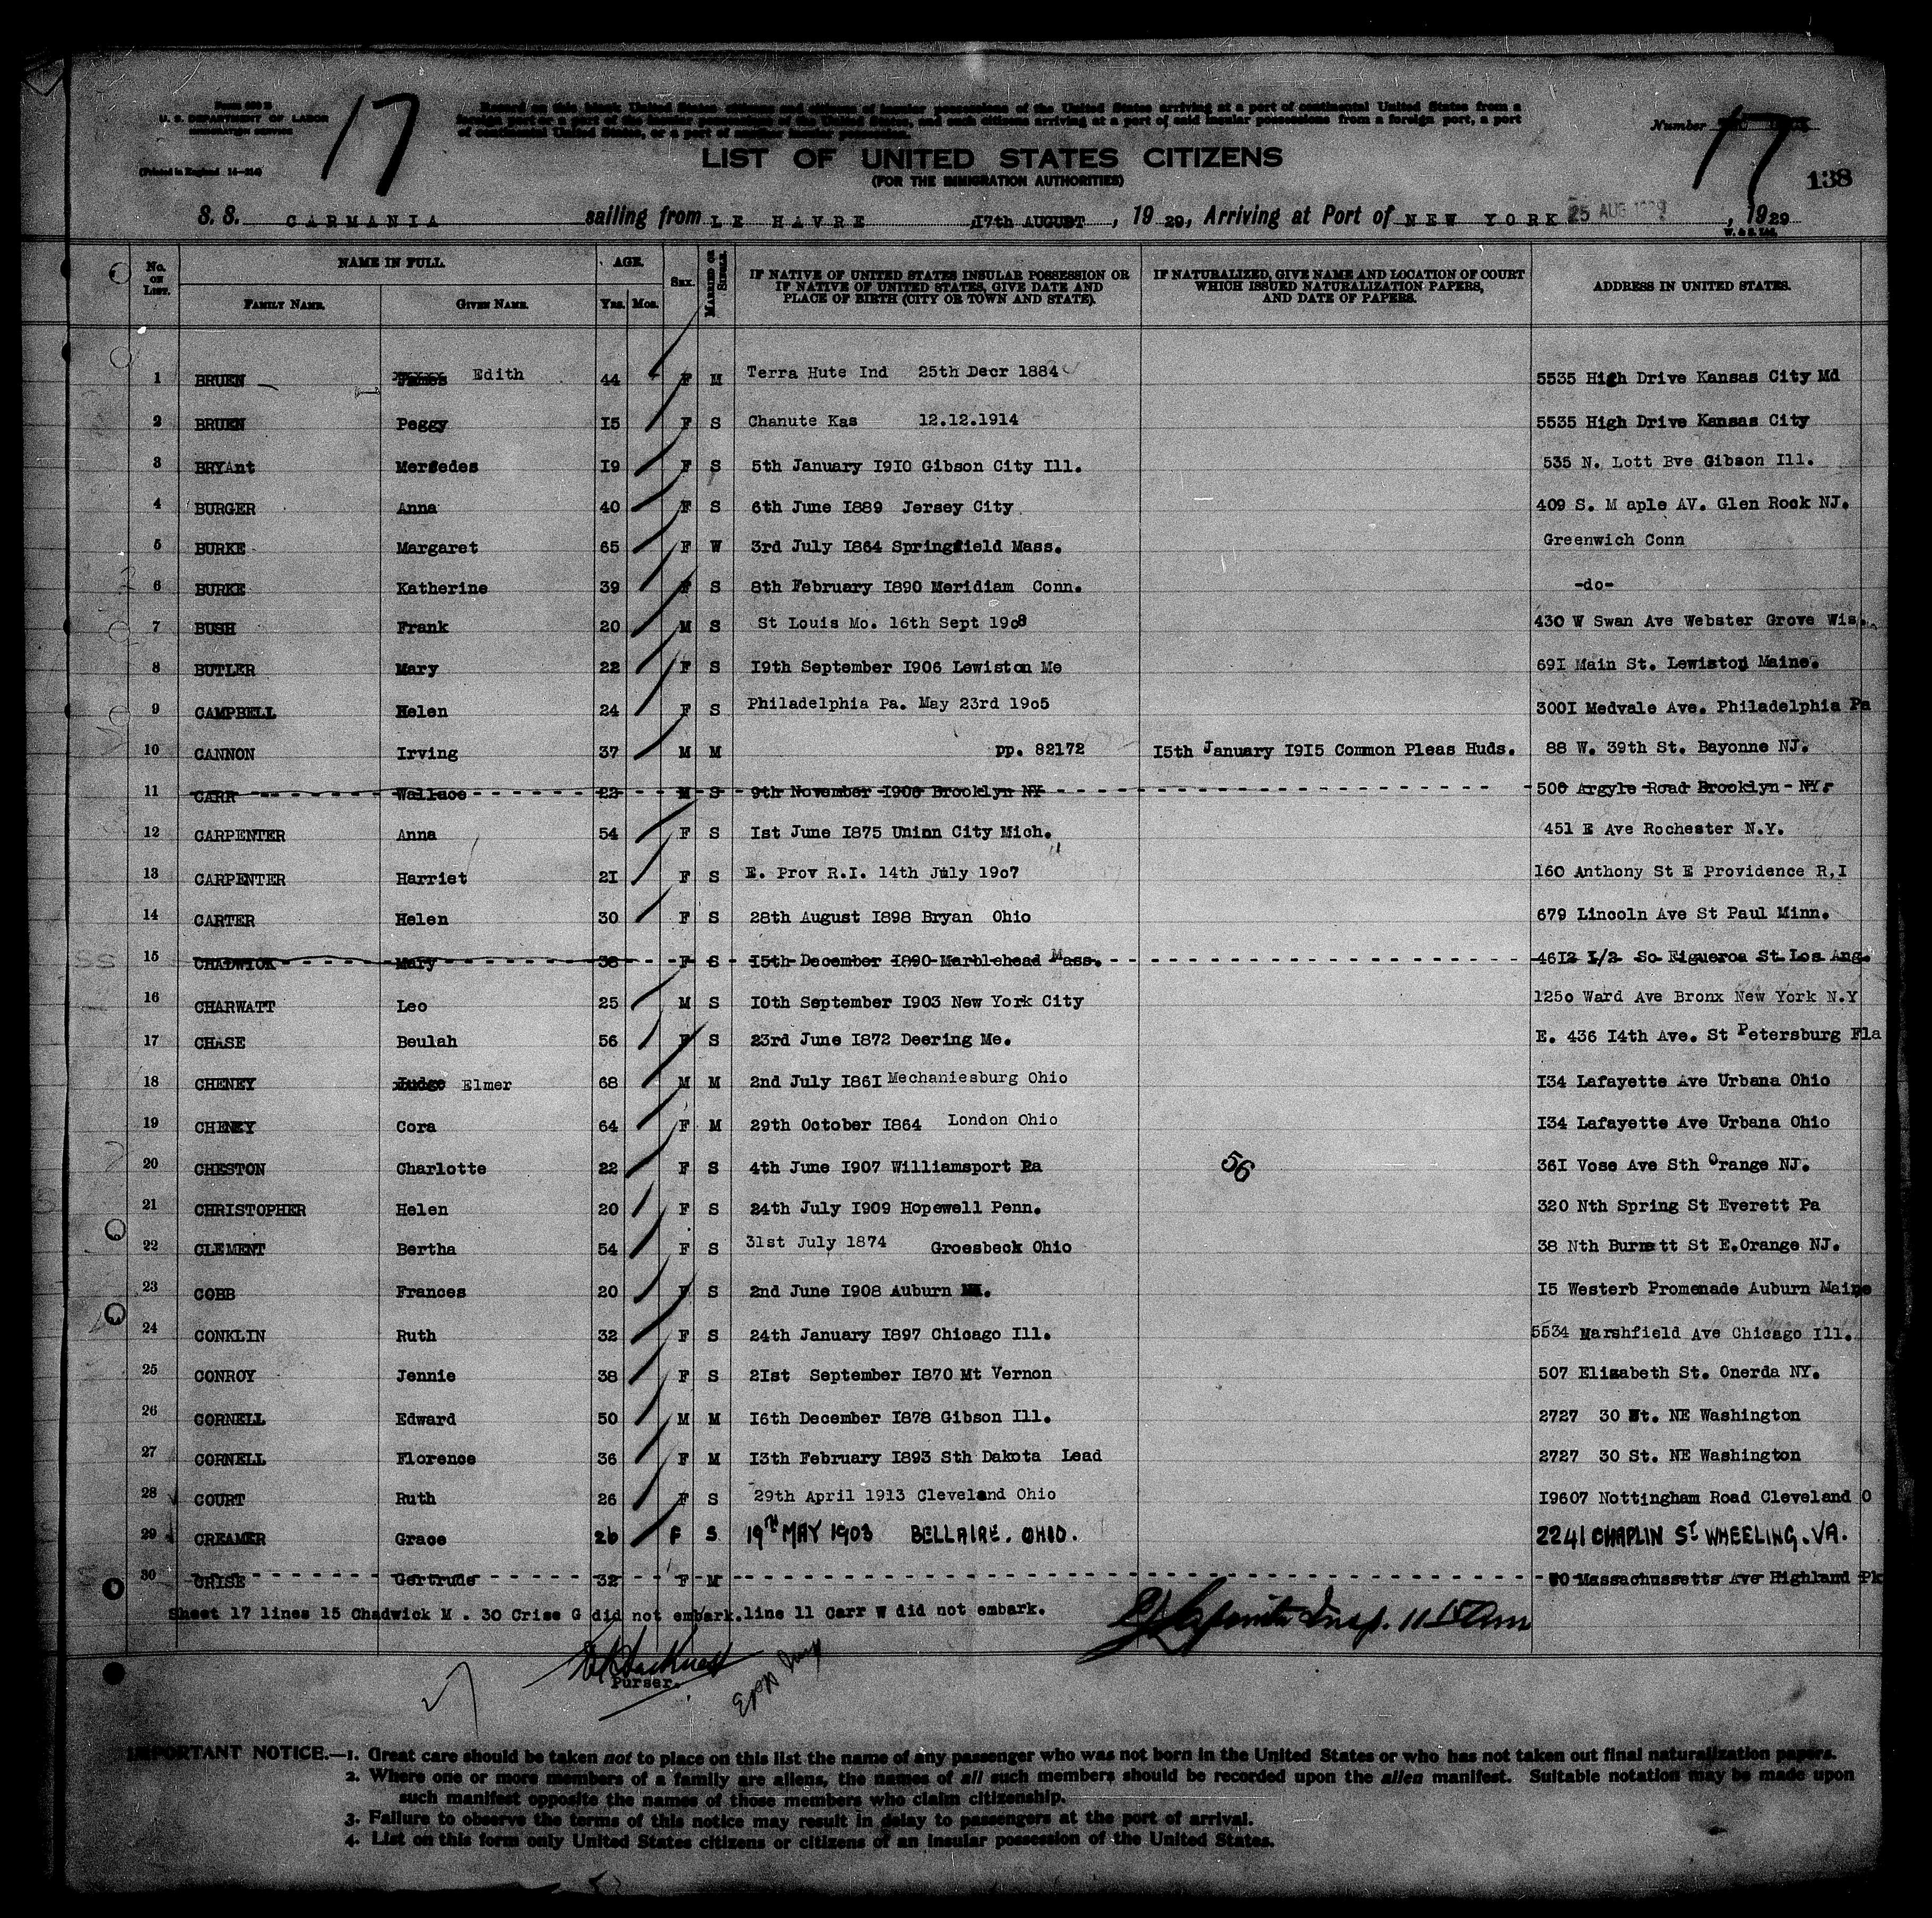 Form 630 B
U. S. DEPARTMENT OF LABOR
IMMIGRATION SERVICE
(Printed in England 14—314)
17
Record on this blank United States citizens and citizens of insular possessions of the United States arriving at a port of continental United States from a
foreign port or a port of the insular possessions of the United States, and such citizens arriving at a port of said insular possessions from a foreign port, a port
of continental United States, or a port of another insular possession.
Number 17
138
LIST OF UNITED STATES CITIZENS
(FOR THE IMMIGRATION AUTHORITIES)
S. S. CARMANIA sailing from LE HAVRE 17th AUGUST, 1929, Arriving at Port of NEW YORK 25 AUG 1929, 1929
W. & S. Ltd.
No. ON LIST. NAME IN FULL. FAMILY NAME. GIVEN NAME. AGE. Yrs. Mos. SEX. MARRIED OR SINGLE. IF NATIVE OF UNITED STATES INSULAR POSSESSION OR IF NATIVE OF UNITED STATES, GIVE DATE AND PLACE OF BIRTH (CITY OR TOWN AND STATE). IF NATURALIZED, GIVE NAME AND LOCATION OF COURT WHICH ISSUED NATURALIZATION PAPERS, AND DATE OF PAPERS. ADDRESS IN UNITED STATES.
1 BRUEN James Edith 44 F M Terra Hute Ind 25th Decr 1884 5535 High Drive Kansas City Md
2 BRUEN Peggy 15 F S Chanute Kas 12.12.1914 5535 High Drive Kansas City
3 BRYAnt Mersedes 19 F S 5th January 1910 Gibson City Ill. 535 N. Lott Bve Gibson Ill.
4 BURGER Anna 40 F S 6th June 1889 Jersey City 409 S. M aple AV. Glen Rock NJ.
5 BURKE Margaret 65 F W 3rd July 1864 Springfield Mass. Greenwich Conn
6 BURKE Katherine 39 F S 8th February 1890 Meridiam Conn. -do-
7 BUSH Frank 20 M S St Louis Mo. 16th Sept 1908 430 W Swan Ave Webster Grove Wis.
8 BUTLER Mary 22 F S 19th September 1906 Lewiston Me 691 Main St. Lewiston Maine.
9 CAMPBELL Helen 24 F S Philadelphia Pa. May 23rd 1905 3001 Medvale Ave. Philadelphia Pa
10 CANNON Irving 37 M M pp. 82172 15th January 1915 Common Pleas Huds. 88 W. 39th St. Bayonne NJ.
11 CARR Wallace 22 M S 9th November 1906 Brooklyn NY 500 Argyle Road Brooklyn - NY.
12 CARPENTER Anna 54 F S 1st June 1875 Union City Mich. 451 E Ave Rochester N.Y.
13 CARPENTER Harriet 21 F S E. Prov R.I. 14th July 1907 160 Anthony St E Providence R,I
14 CARTER Helen 30 F S 28th August 1898 Bryan Ohio 679 Lincoln Ave St Paul Minn.
15 CHADWICK Mary 38 F S 15th December 1890 Marblehead Mass. 4612 1/2 So Figueroa St Los Ang.
16 CHARWATT Leo 25 M S 10th September 1903 New York City 1250 Ward Ave Bronx New York N.Y
17 CHASE Beulah 56 F S 23rd June 1872 Deering Me. E. 436 14th Ave. St Petersburg Fla
18 CHENEY Judge Elmer 68 M M 2nd July 1861 Mechaniesburg Ohio 134 Lafayette Ave Urbana Ohio
19 CHENEY Cora 64 F M 29th October 1864 London Ohio 134 Lafayette Ave Urbana Ohio
20 CHESTON Charlotte 22 F S 4th June 1907 Williamsport Pa 56 361 Vose Ave Sth Orange NJ.
21 CHRISTOPHER Helen 20 F S 24th July 1909 Hopewell Penn. 320 Nth Spring St Everett Pa
22 CLEMENT Bertha 54 F S 31st July 1874 Groesbeck Ohio 38 Nth Burnett St E.Orange NJ.
23 COBB Frances 20 F S 2nd June 1908 Auburn 15 Westerb Promenade Auburn Maine
24 CONKLIN Ruth 32 F S 24th January 1897 Chicago Ill. 5534 Marshfield Ave Chicago Ill.
25 CONROY Jennie 38 F S 21st September 1870 Mt Vernon 507 Elizabeth St. Onerda NY.
26 CORNELL Edward 50 M M 16th December 1878 Gibson Ill. 2727 30 St. NE Washington
27 CORNELL Florence 36 F M 13th February 1893 Sth Dakota Lead 2727 30 St. NE Washington
28 COURT Ruth 26 F S 29th April 1913 Cleveland Ohio 19607 Nottingham Road Cleveland O
29 CREAMER Grace 26 F S 19TH MAY 1903 BELLAIRE. OHIO. 2241 CHAPLIN ST WHEELING. VA.
30 CRISE Gertrude 32 F M 70 Massachussetts Ave Highland Pk
Sheet 17 lines 15 Chadwick M . 30 Crise G did not embark.line 11 Carr W did not embark.
Insp. 11 15 am
Purser.
IMPORTANT NOTICE.—1. Great care should be taken not to place on this list the name of any passenger who was not born in the United States or who has not taken out final naturalization papers.
2. Where one or more members of a family are aliens, the names of all such members should be recorded upon the alien manifest. Suitable notation may be made upon
such manifest opposite the names of those members who claim citizenship.
3. Failure to observe the terms of this notice may result in delay to passengers at the port of arrival.
4. List on this form only United States citizens or citizens of an insular possession of the United States.